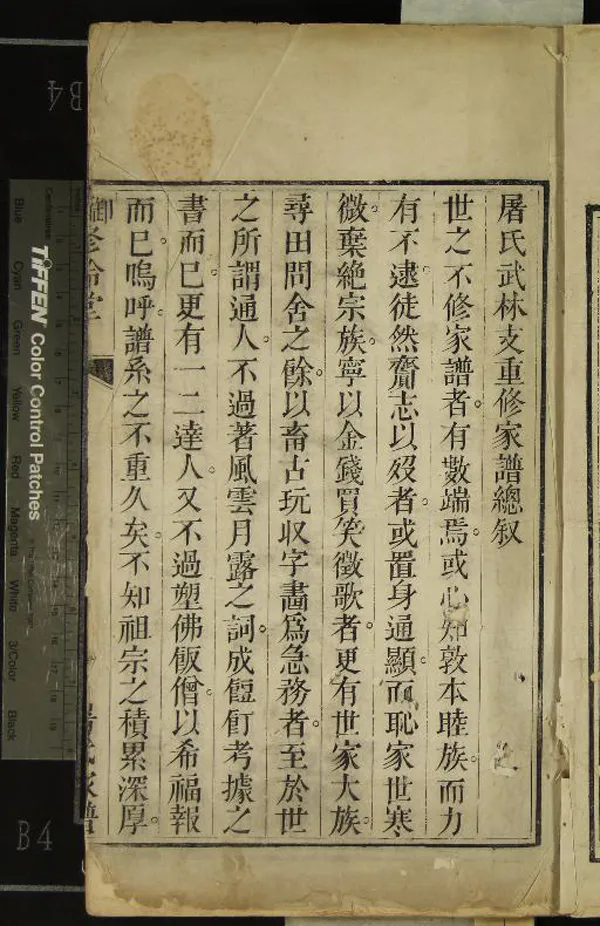 屠氏武林支重修家譜總叙
世之不修家譜者。有數端焉。或心知敦本睦族。而力
有不逮。徒然齎志以歿者。或置身通顯。而恥家世寒
微。棄絶宗族。寧以金錢買笑徵歌者。更有世家大族。
尋田問舍之餘。以畜古玩収字畵爲急務者。至於世
之所謂通人。不過著風雲月露之詞。成餖飣考據之
書而已。更有一二達人。又不過塑佛飯僧。以希福報
而已。嗚呼。譜系之不重久矣。不知祖宗之積累深厚。
家譜
B4
B4
TIFFEN Color Control Patches
Blue
Cyan
Green
Yellow
Red
Magenta
White
3/Color
Black